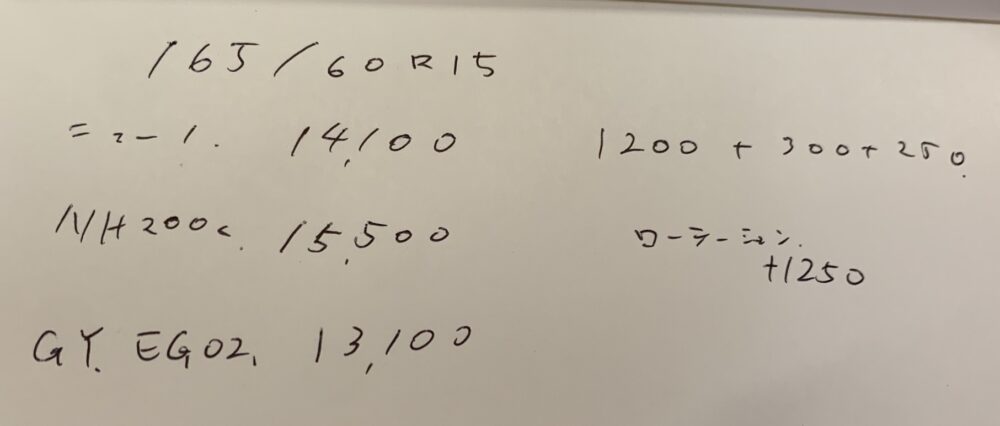 165/60R15
ニュー1. 14,100
1200 + 300 + 250.
NH200c. 15,500
ローテーション.
+1250
GY. EG02. 13,100